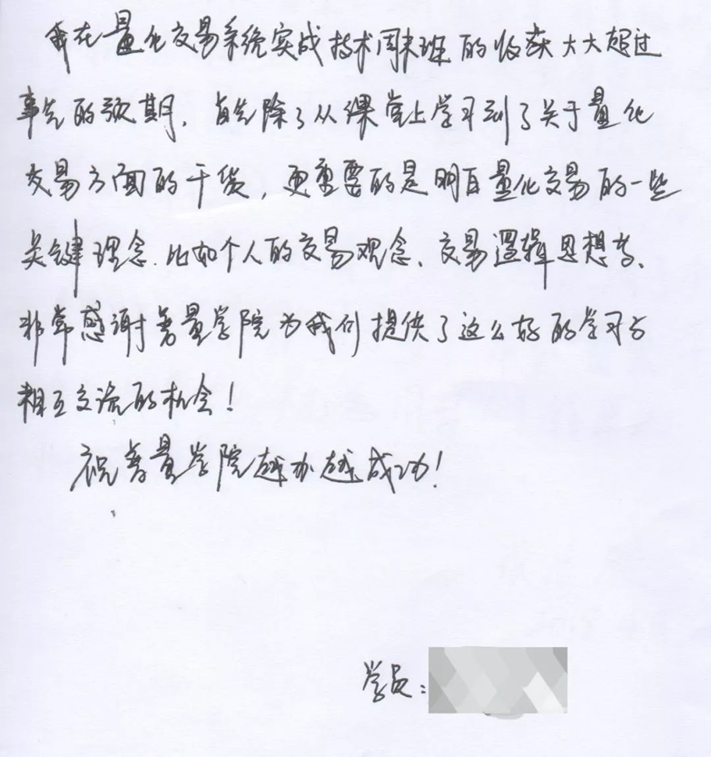 我在量化交易系统实战技术周末班的收获大大超过
事先的预期。首先除了从课堂上学习到了关于量化
交易方面的干货，更重要的是明白量化交易的一些
关键理念.比如个人的交易观念、交易逻辑思想等、
非常感谢善量学院为我们提供了这么好的学习与
相互交流的机会！
祝善量学院越办越成功！
学员：